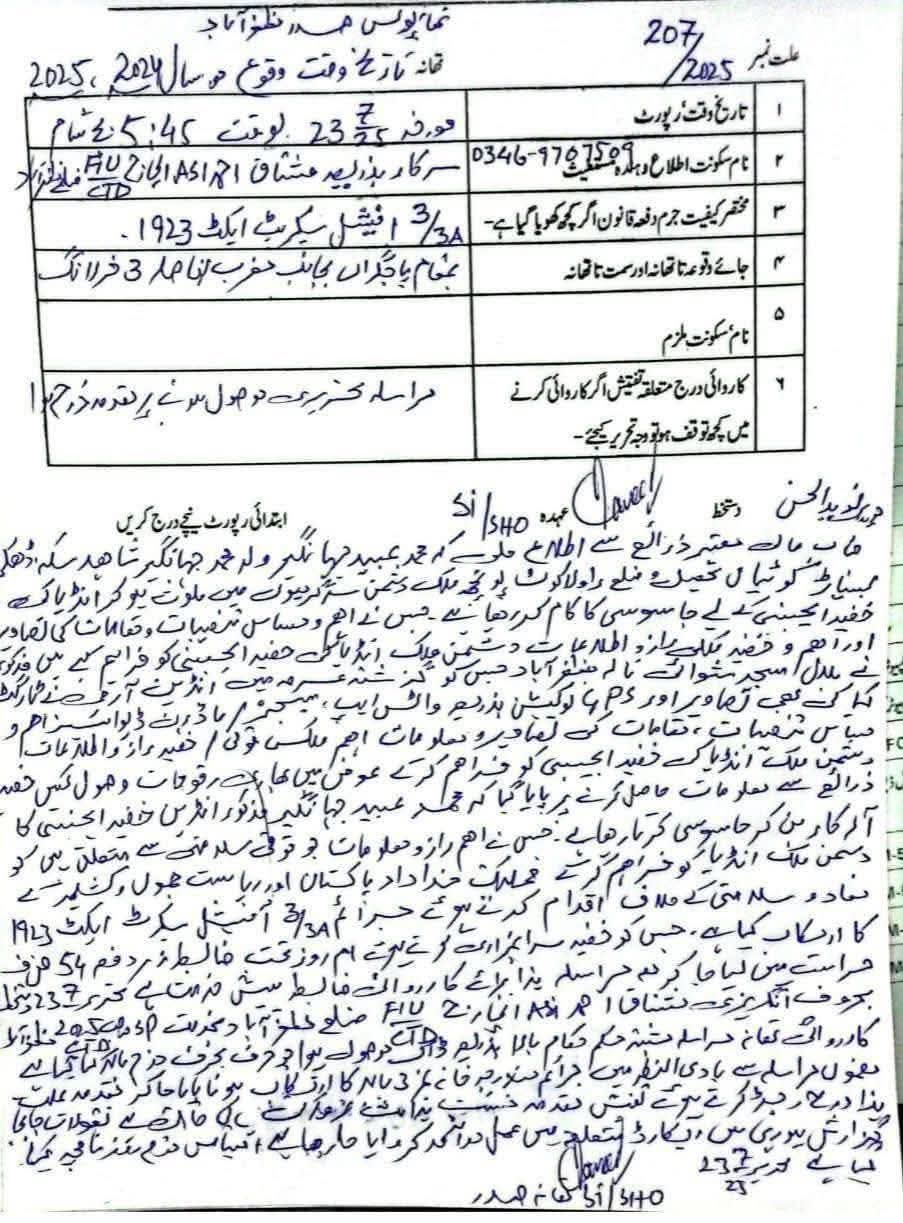 تھانہ پولیس صدر مظفرآباد
علت نمبر 207/2025
تھانہ تاریخ وقت وقوع سال 2024، 2025
۱ تاریخ وقت رپورٹ مورخہ 23 7/25 بوقت 5:45 بجے شام
۲ نام سکونت اطلاع دہندہ مستغیث 0346-9707509 سرکار بذریعہ مشتاق احمد ASI انچارج FIU/CTD ضلع مظفرآباد
۳ مختصر کیفیت جرم دفعہ قانون اگر کچھ کھویا گیا ہے۔ 3/3A آفیشل سیکریٹ ایکٹ 1923۔
۴ جائے وقوعہ تا تھانہ اور سمت تا تھانہ بمقام بجانب مغرب 3 فرلانگ
۵ نام سکونت ملزم
۶ کاروائی درج متعلقہ تفتیش اگر کاروائی کرنے میں کچھ توقف ہو تو وجہ تحریر کیجئے۔ مراسلہ تحریری موصول ہونے پر مقدمہ درج ہوا
نوید الحسن دستخط عہدہ SI/SHO
ابتدائی رپورٹ نیچے درج کریں
معتبر ذرائع سے اطلاع ملی کہ محمد عبید جہانگیر ولد محمد جہانگیر شاہد سکنہ
تحصیل و ضلع راولاکوٹ ملک دشمن سرگرمیوں میں ملوث ہو کر انڈیا کی
خفیہ ایجنسی کے لیے جاسوسی کا کام کر رہا ہے۔ جس نے اہم و حساس تنصیبات و مقامات کی تصاویر
اور اہم و خفیہ ملکی راز و اطلاعات دشمن ملک انڈیا کی خفیہ ایجنسی کو فراہم کیے ہیں
نے بلال مسجد شوائی نالہ مظفرآباد جس کو گزشتہ عرصہ میں انڈین آرمی نے ٹارگٹ
کیا کی بھی تصاویر اور GPS لوکیشن بذریعہ واٹس ایپ، میسنجر/ماڈرن ڈیوائسز اہم و
حساس تنصیبات، مقامات کی تصاویر و معلومات اہم ملکی فوجی/خفیہ راز و اطلاعات
دشمن ملک انڈیا کی خفیہ ایجنسی کو فراہم کرکے عوض میں بھاری رقومات وصول کیں خفیہ
ذرائع سے معلومات حاصل کرنے پر پایا گیا کہ محمد عبید جہانگیر مذکور انڈین خفیہ ایجنسی کا
آلہ کار بن کر جاسوسی کرتا رہا ہے۔ جس نے اہم راز و معلومات جو قومی سلامتی سے متعلق ہیں کو
دشمن ملک انڈیا کو فراہم کرکے مملکت خداداد پاکستان اور ریاست جموں و کشمیر کے
مفاد و سلامتی کے خلاف اقدام کرتے ہوئے جرائم 3/3A آفیشل سیکرٹ ایکٹ 1923
کا ارتکاب کیا ہے۔ جس کو خفیہ سراغ براری کرتے ہوئے امروز تحت ضابطہ زیر دفعہ 54 ض ف
حراست میں لیا جا کر مراسلہ ہذا برائے کارروائی ضابطہ پیش خدمت ہے تحریر 23 7
بحروف انگریزی مشتاق احمد ASI انچارج FIU CTD ضلع مظفرآباد بخدمت
کارروائی تھانہ مراسلہ بالا بذریعہ ڈاک موصول ہوا جو حرف بحرف درج بالا کیا گیا ہے
مضمون مراسلہ سے بادی النظر میں جرائم مندرجہ خانہ نمبر 3 بالا کا ارتکاب ہونا پایا جا کر مقدمہ علت
ہذا درج رجسٹر کرتے ہوئے تفتیش مقدمہ نقولات جابجا
گزارش ریکارڈ متعلقہ میں عمل درآمد کروایا جا رہا ہے،
گیا ہے تحریر 23 7/25
SI/SHO تھانہ صدر